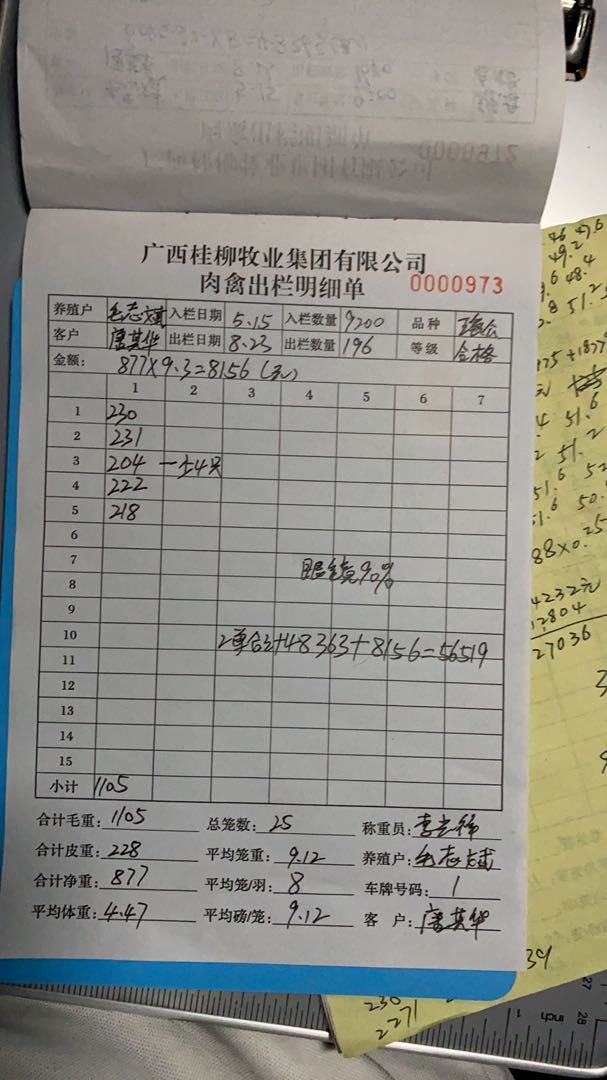 广西桂柳牧业集团有限公司
肉禽出栏明细单 0000973
养殖户 毛志斌 入栏日期 5.15 入栏数量 9200 品种
客户 唐其华 出栏日期 8.23 出栏数量 196 等级 合格
金额: 877×9.3=8156(元)
1 2 3 4 5 6 7
1 230
2 231
3 204 一至4只
4 222
5 218
6
7 眼镜90%
8
9
10 2单合计48363+8156=56519
11
12
13
14
15
小计 1105
合计毛重: 1105 总笼数: 25 称重员: 李
合计皮重: 228 平均笼重: 9.12 养殖户: 毛志斌
合计净重: 877 平均笼/羽: 8 车牌号码: 1
平均体重: 4.47 平均磅/笼: 9.12 客 户: 唐其华
46 47.6
49.2
6 48.4
8 51.2
51.6
51.2
51.6
51.6 50.
88×0.25
4232元
12804
27036
39
230
2271
27
28
inch
1